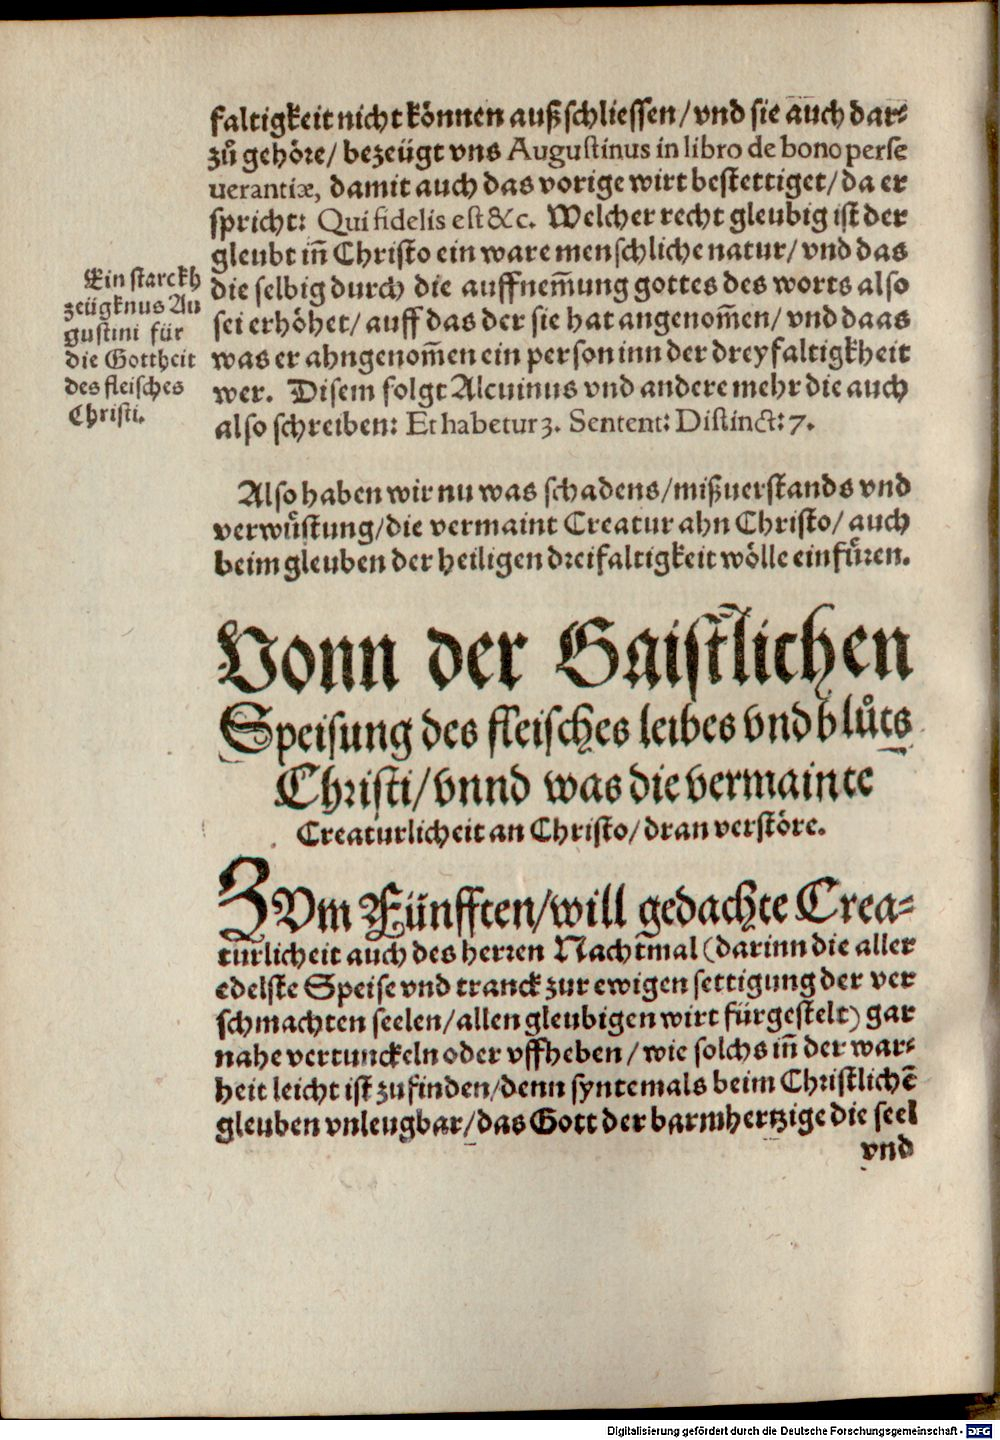 faltigkeit nicht können außschliessen/vnd sie auch dar-
zů gehöre/ bezeügt vns Augustinus in libro de bono perse
uerantiæ, damit auch das vorige wirt bestettiget/da er
spricht: Qui fidelis est &c. Welcher recht gleubig ist der
gleubt iñ Christo ein ware menschliche natur/vnd das
die selbig durch die auffnem̄ung gottes des worts also
sei erhöhet/ auff das der sie hat angenom̄en/ vnd daas
was er ahngenom̄en ein person inn der dreyfaltigkheit
wer. Disem folgt Alcuinus vnd andere mehr die auch
also schreiben: Et habetur 3. Sentent: Distinct: 7.
Ein starckh
zeügknus Au
gustini für
die Gottheit
des fleisches
Christi.
Also haben wir nu was schadens/mißuerstands vnd
verwůstung/die vermaint Creatur ahn Christo/ auch
beim gleuben der heiligen dreifaltigkeit wölle einfůren.
Vonn der Gaistlichen
Speisung des fleisches leibes vnd blůts
Christi/vnnd was die vermainte
Creaturlicheit an Christo/dran verstöre.
ZVm Fünfften/will gedachte Crea-
turlicheit auch des herren Nachtmal (darinn die aller
edelste Speise vnd tranck zur ewigen settigung der ver
schmachten seelen/allen gleubigen wirt fürgestelt) gar
nahe vertunckeln oder vffheben/wie solchs iñ der war-
heit leicht ist zufinden/denn syntemals beim Christlichē
gleuben vnleugbar/das Gott der barmhertzige die seel
vnd
Digitalisierung gefördert durch die Deutsche Forschungsgemeinschaft - DFG